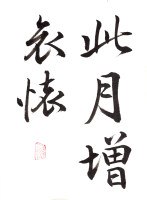 此月增
哀懐